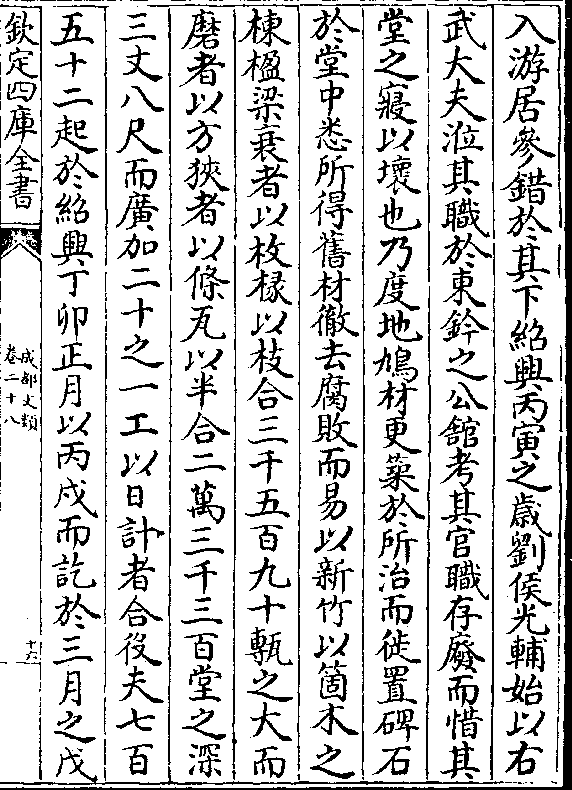 入游居參錯於其下紹興丙寅之歳劉侯光輔始以右
武大夫涖其職於東鈐之公舘考其官職存廢而惜其
堂之寢以壞也乃度地鳩材更築於所治而徙置碑石
於堂中悉所得舊材徹去腐敗而易以新竹以箇木之
棟楹梁衰者以枚椽以枝合三千五百九十甎之大而
磨者以方狹者以條瓦以半合二萬三千三百堂之深
三丈八尺而廣加二十之一工以日計者合役夫七百
五十二起於紹興丁卯正月以丙戍而訖於三月之戊
欽定四庫全書
成都文類
卷二十八
十六